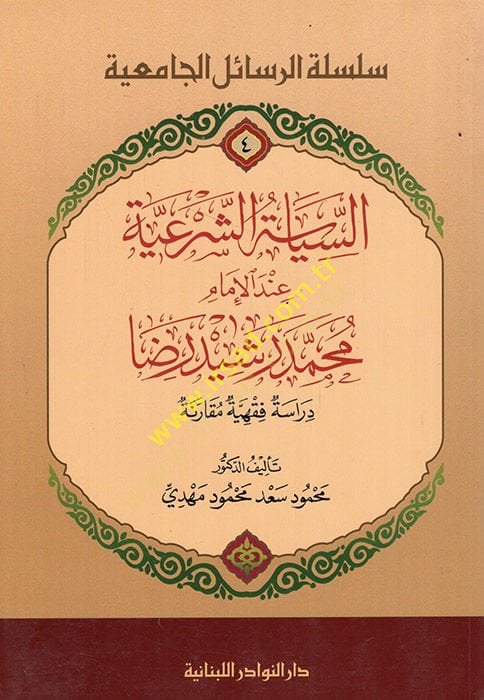 سلسلة الرسائل الجامعية
٤
السِّيَاسَةُ الشَّرْعِيَّة
عِنْدَ الإِمَامِ
مُحَمَّد رَشِيد رِضَا
دِرَاسَةٌ فِقْهِيَّةٌ مُقَارَنَةٌ
تَأْلِيفُ الدَّكتُور
مَحْمُود سَعْد مَحْمُود مَهْدِي
دار النوادر اللبنانية